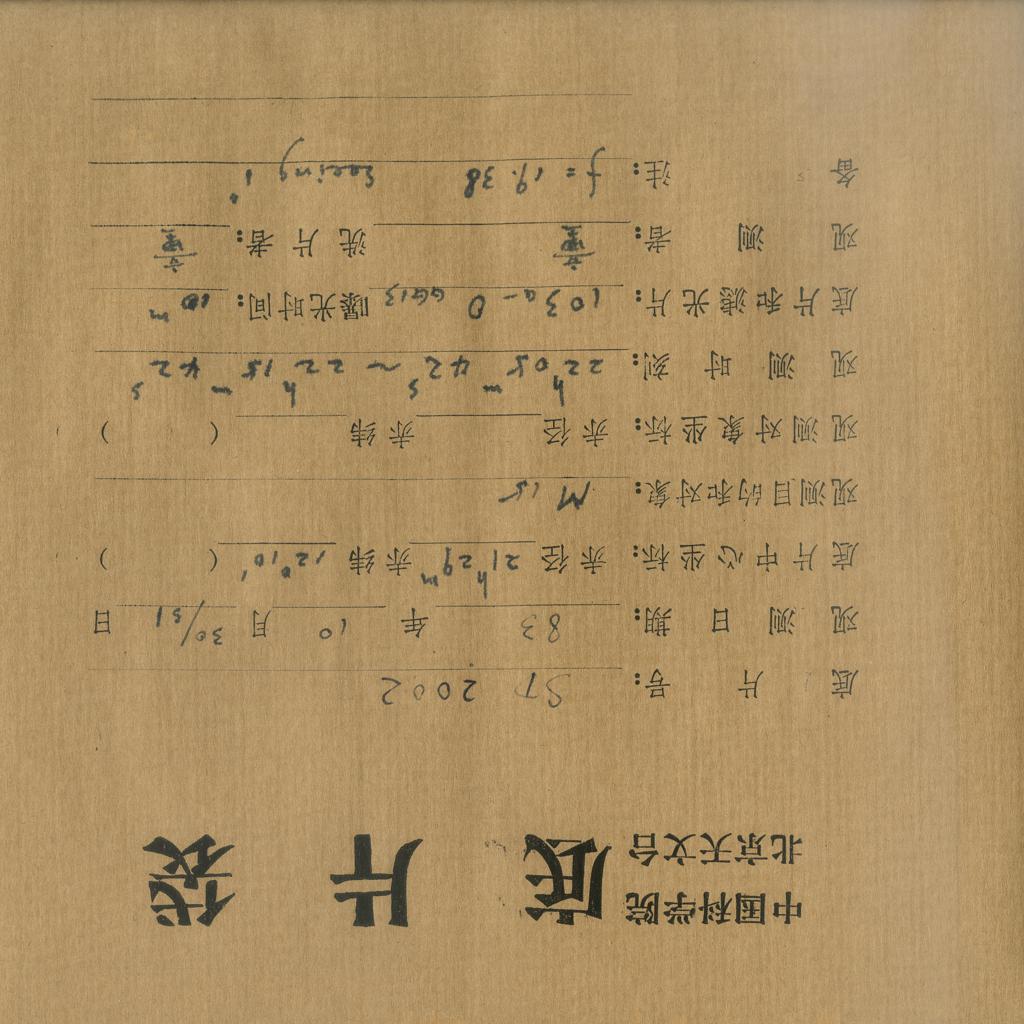 中国科学院
北京天文台 底片袋
底片号: ST 2002
观测日期: 83 年 10 月 30/31 日
底片中心坐标: 赤径 21h29m 赤纬 12°10′ ( )
观测目的和对象: M15
观测对象坐标: 赤径 赤纬 ( )
观测时刻: 22h05m42s ~ 22h15m42s
底片和滤光片: 103a-O GG13 曝光时间: 10m
观测者: 洗片者:
备注: f = 19.38 Seeing 1"